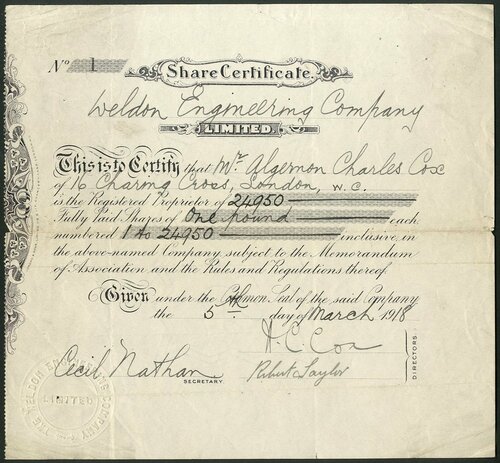 No 1
Share Certificate.
Weldon Engineering Company
LIMITED.
This is to Certify that Mr. Algernon Charles Cox
of 16 Charing Cross, London, W.C.
is the Registered Proprietor of 24950
Fully Paid Shares of One pound each
numbered 1 to 24950 inclusive, in
the above-named Company subject to the Memorandum
of Association and the Rules and Regulations thereof.
Given under the Common Seal of the said Company
the 5th day of March 1918
A. C. Cox
Cecil Nathan
SECRETARY.
Robert Taylor
DIRECTORS.
THE WELDON ENGINEERING COMPANY
LIMITED